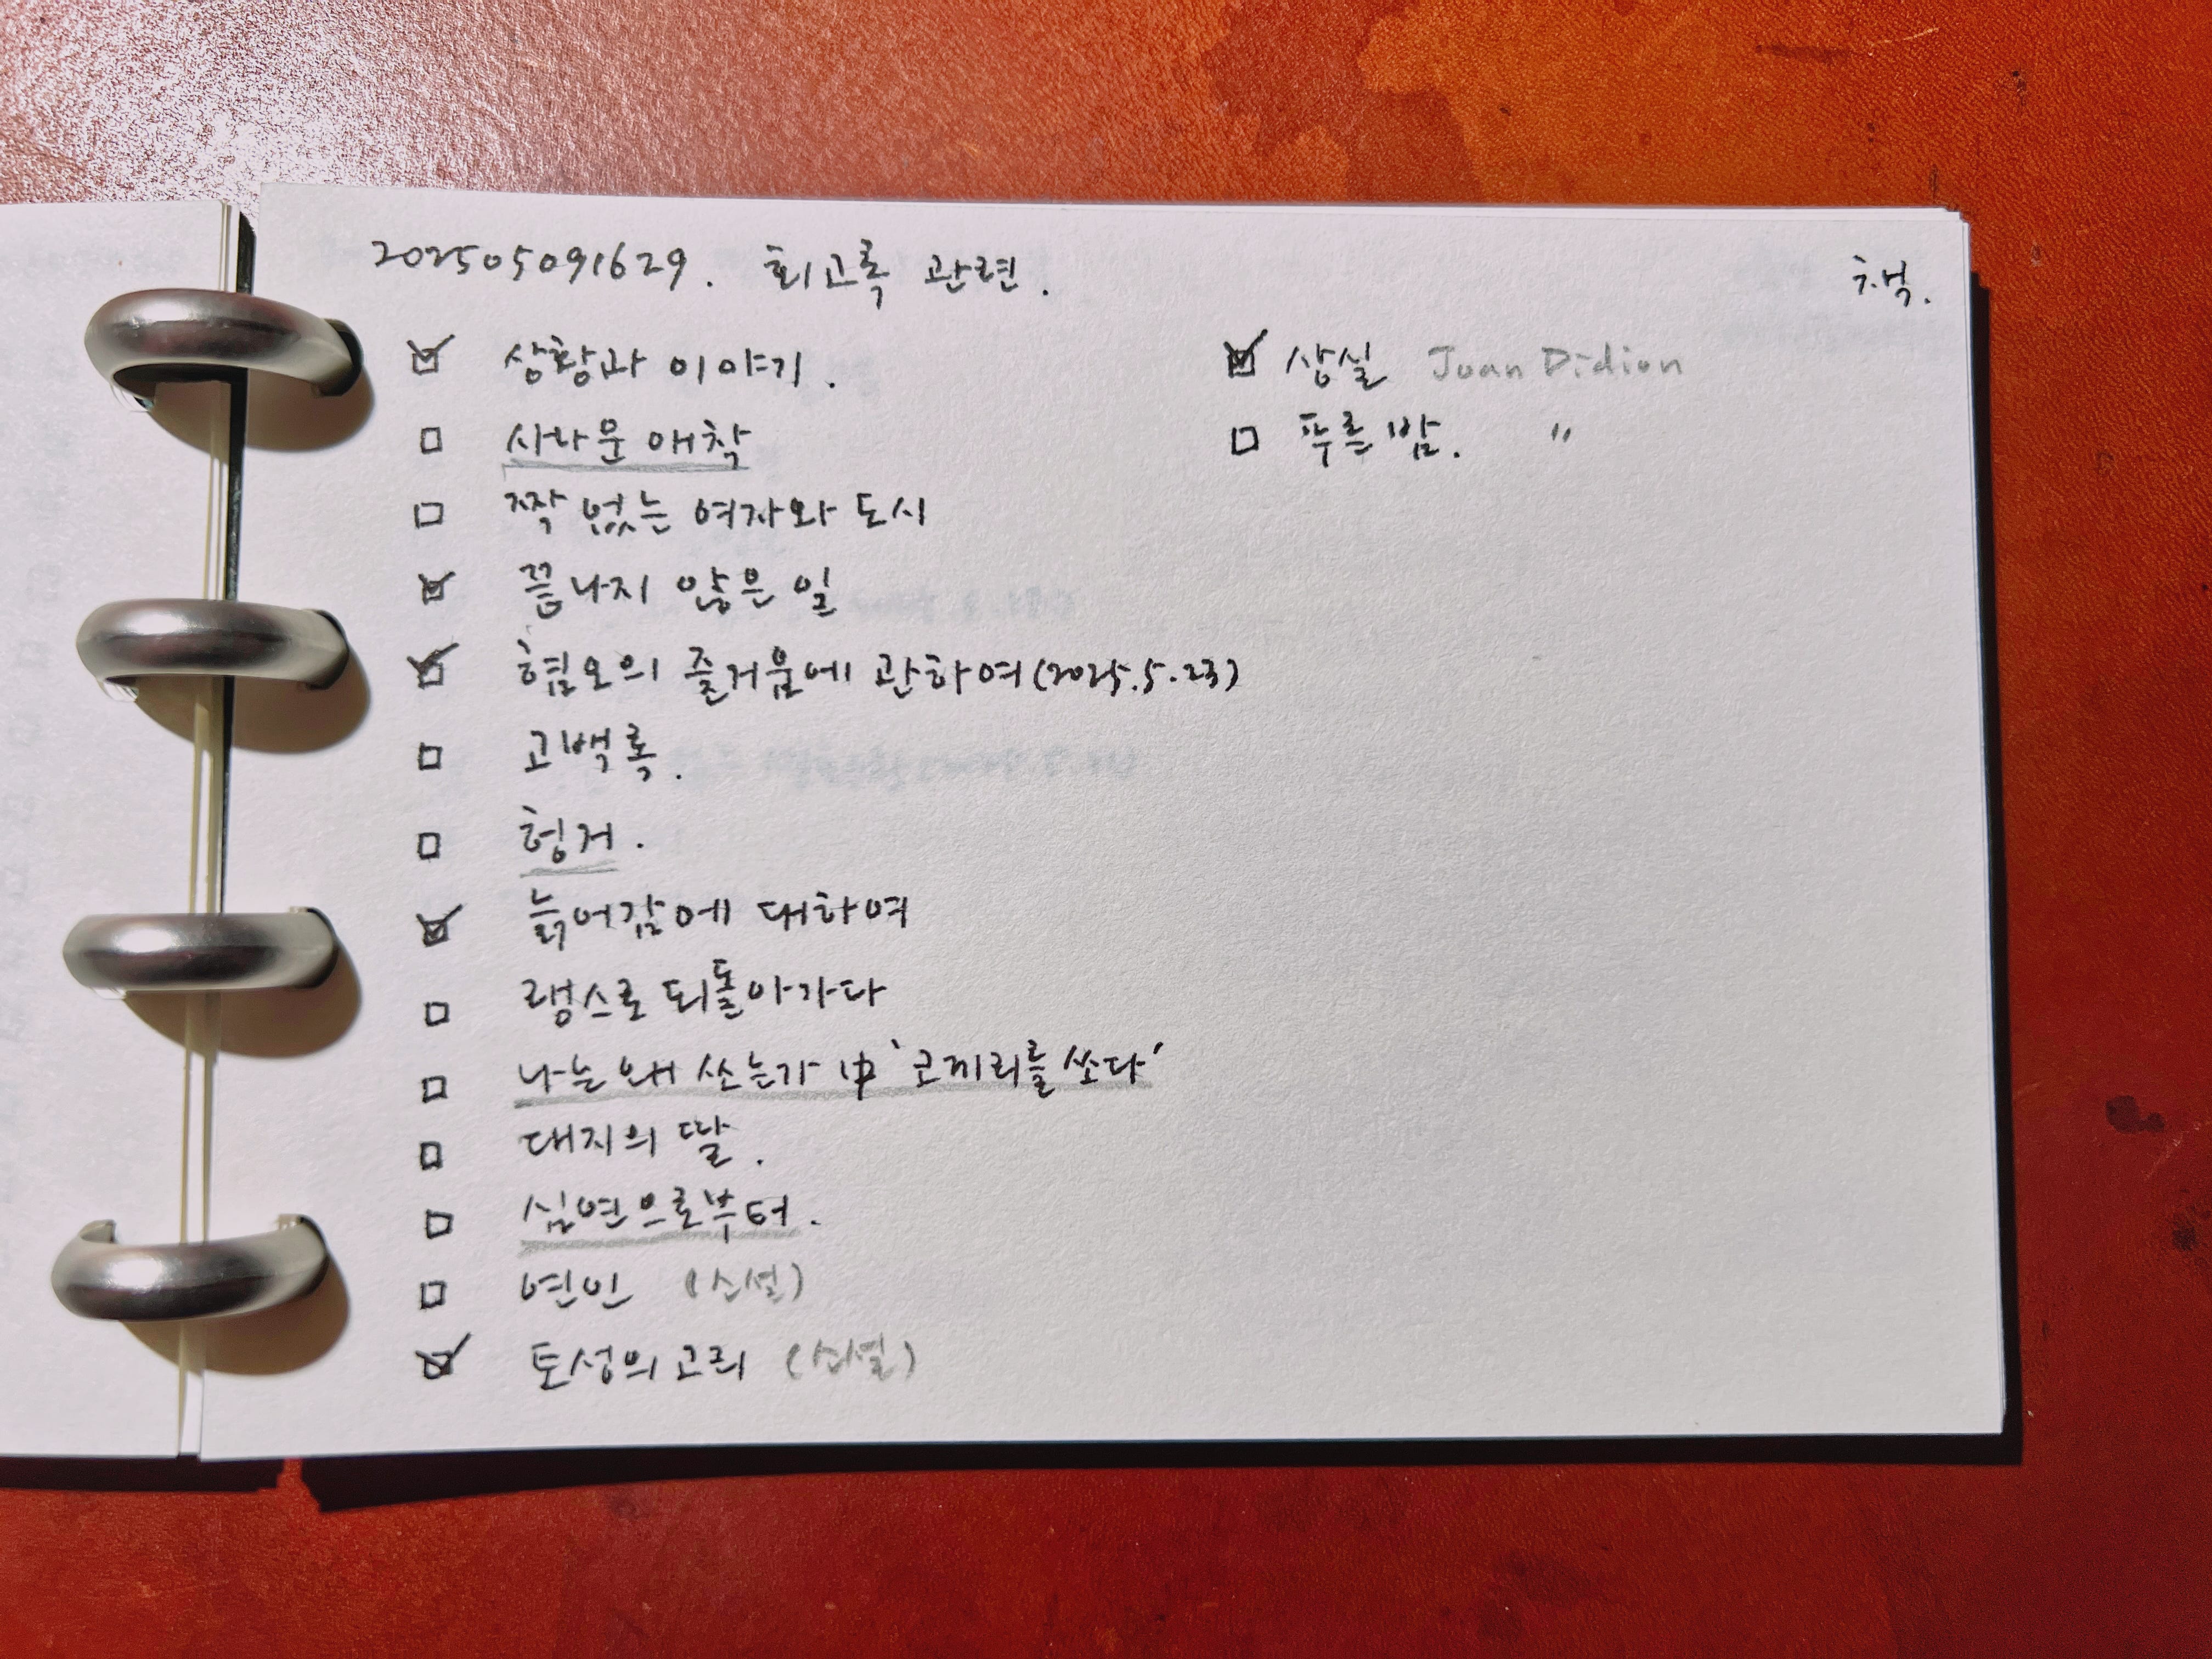 202505091629. 회고록 관련. 책.
☑ 상황과 이야기.
☐ 사나운 애착
☐ 짝 없는 여자와 도시
☑ 끝나지 않은 일
☑ 혐오의 즐거움에 관하여(2025.5.23)
☐ 고백록.
☐ 헝거.
☑ 늙어감에 대하여
☐ 랭스로 되돌아가다
☐ 나는 왜 쓰는가 中 '코끼리를 쏘다'
☐ 대지의 딸.
☐ 심연으로부터.
☐ 연인 (소설)
☑ 토성의 고리 (소설)
☑ 상실 Joan Didion
☐ 푸른 밤. "